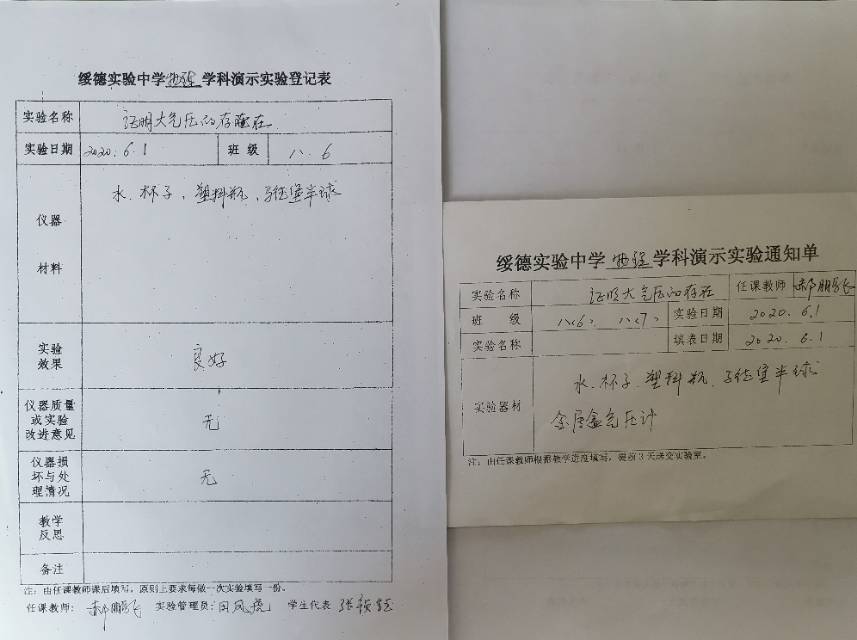 绥德实验中学物理学科演示实验登记表
实验名称 证明大气压的存在
实验日期 2020.6.1 班级 八.6
仪器 水、杯子、塑料瓶、马德堡半球
材料
实验
效果 良好
仪器质量
或实验
改进意见 无
仪器损
坏与处
理情况 无
教学
反思
备注
注:由任课教师课后填写,原则上要求每做一次实验填写一份。
任课教师: 郝鹏飞 实验管理员: 学生代表
绥德实验中学物理学科演示实验通知单
实验名称 证明大气压的存在 任课教师 郝鹏飞
班 级 八(6)、八(7)、 实验日期 2020.6.1
实验名称 填表日期 2020.6.1
实验器材 水、杯子、塑料瓶、马德堡半球
金属盒气压计
注:由任课教师根据教学进度填写,提前3天送交实验室。